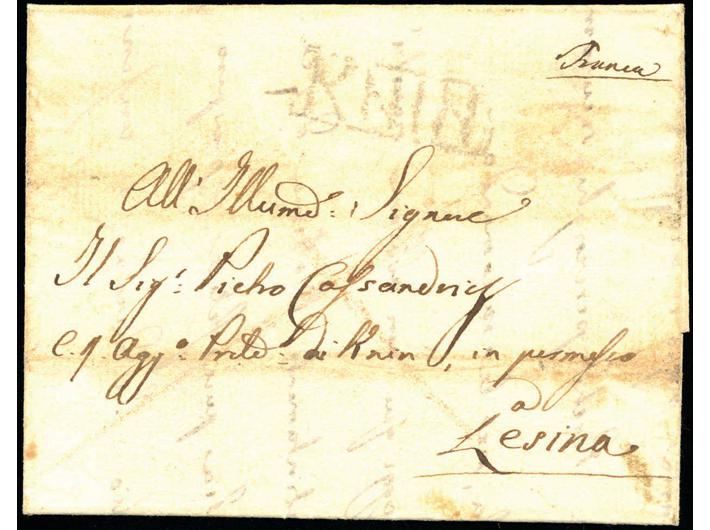 Franca
All' Illumd: Signore
Il Sigr: Pietro Cassandrich
C. q. Aggo Pretd: di Knin, in permesso
a
Lesina